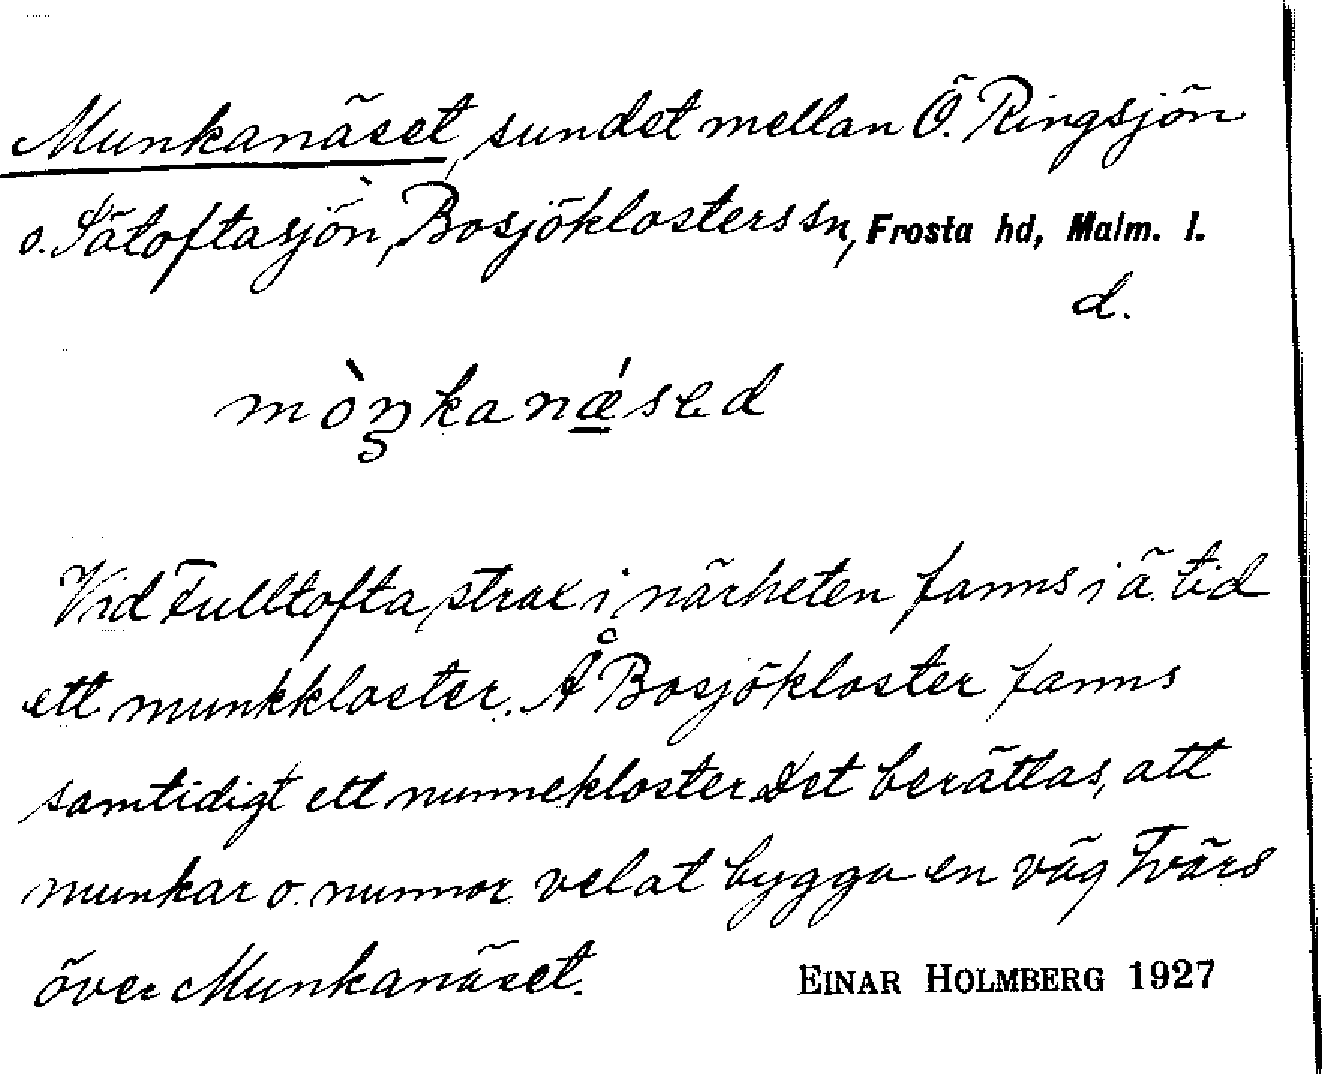 Munkanäset, sundet mellan Ö. Ringsjön
o. Sätoftasjön, Bosjöklosters sn, Frosta hd, Malm. l.
d.
mòŋkanǽsed
Vid Fulltofta, strax i närheten fanns i ä. tid
ett munkkloster. Å Bosjökloster fanns
samtidigt ett nunnekloster. Det berättas, att
munkar o. nunnor velat bygga en väg tvärs
över Munkanäset.
EINAR HOLMBERG 1927